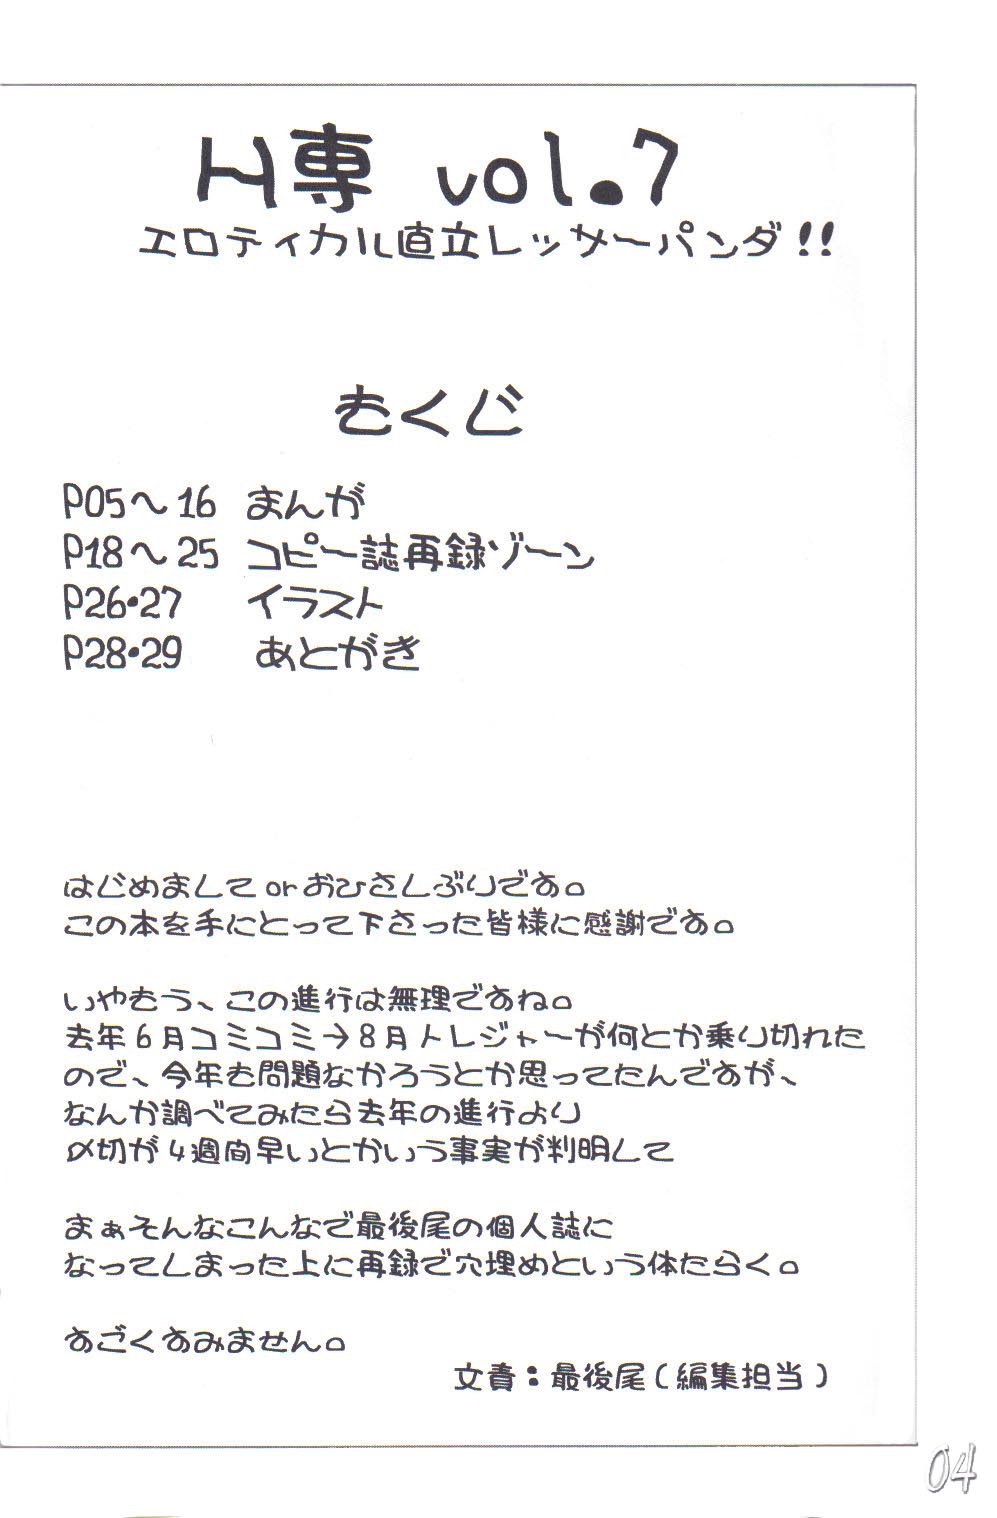 H専 vol.7
エロティカル直立レッサーパンダ!!
もくじ
P05～16 まんが
P18～25 コピー誌再録ゾーン
P26・27 イラスト
P28・29 あとがき
はじめましてorおひさしぶりです。
この本を手にとって下さった皆様に感謝です。
いやもう、この進行は無理ですね。
去年6月コミコミ→8月トレジャーが何とか乗り切れた
ので、今年も問題なかろうとか思ってたんですが、
なんか調べてみたら去年の進行より
〆切が4週間早いとかいう事実が判明して
まぁそんなこんなで最後尾の個人誌に
なってしまった上に再録で穴埋めという体たらく。
すごくすみません。
文責：最後尾(編集担当)
04